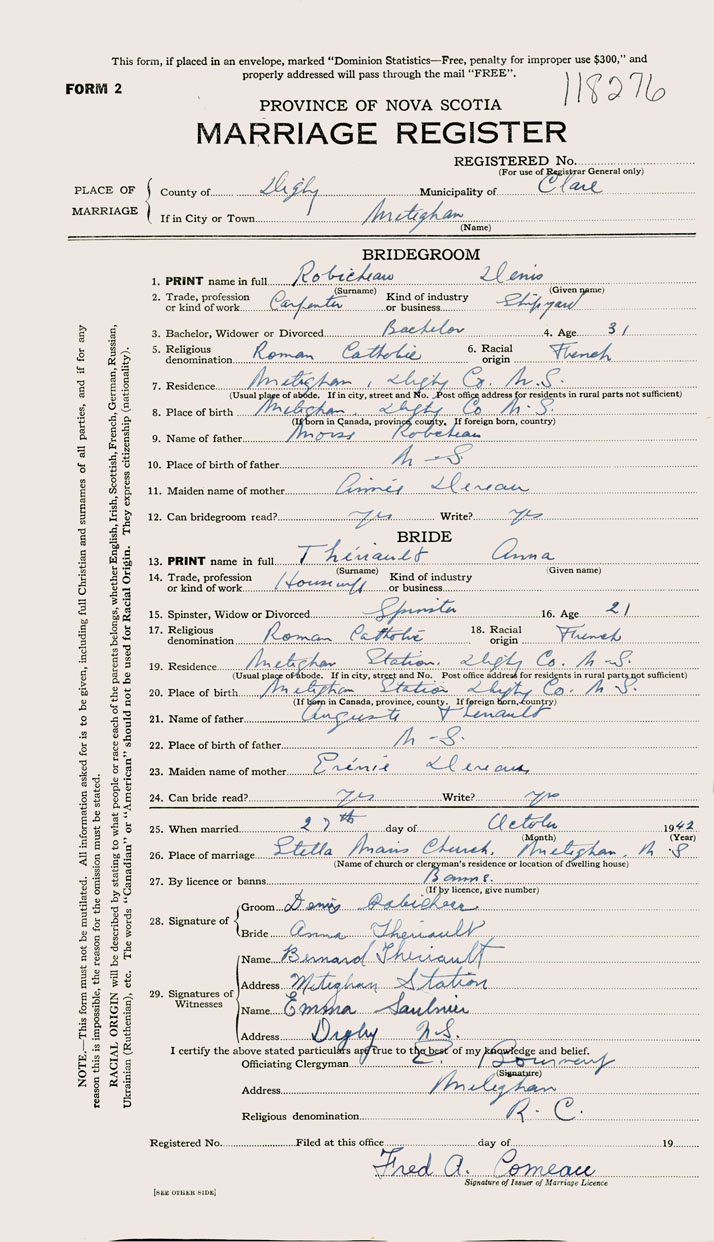 This form, if placed in an envelope, marked "Dominion Statistics—Free, penalty for improper use $300," and
properly addressed will pass through the mail "FREE".
FORM 2
118276
PROVINCE OF NOVA SCOTIA
MARRIAGE REGISTER
REGISTERED No.
(For use of Registrar General only)
PLACE OF MARRIAGE
County of Digby Municipality of Clare
If in City or Town Meteghan
(Name)
BRIDEGROOM
1. PRINT name in full Robicheau Denis
(Surname) (Given name)
2. Trade, profession or kind of work Carpenter Kind of industry or business Shipyard
3. Bachelor, Widower or Divorced Bachelor 4. Age 31
5. Religious denomination Roman Catholic 6. Racial origin French
7. Residence Meteghan, Digby Co. N.S.
(Usual place of abode. If in city, street and No. Post office address for residents in rural parts not sufficient)
8. Place of birth Meteghan, Digby Co N.S.
(If born in Canada, province, county. If foreign born, country)
9. Name of father Robicheau
10. Place of birth of father N-S.
11. Maiden name of mother Aimée
12. Can bridegroom read? yes Write? yes
BRIDE
13. PRINT name in full Thériault Anna
(Surname) (Given name)
14. Trade, profession or kind of work Housewife Kind of industry or business
15. Spinster, Widow or Divorced Spinster 16. Age 21
17. Religious denomination Roman Catholic 18. Racial origin French
19. Residence Meteghan Station. Digby Co. N-S.
(Usual place of abode. If in city, street and No. Post office address for residents in rural parts not sufficient)
20. Place of birth Meteghan Station Digby Co. N S.
(If born in Canada, province, county. If foreign born, country)
21. Name of father Auguste Thériault
22. Place of birth of father N-S.
23. Maiden name of mother
24. Can bride read? yes Write? yes
25. When married 27th day of October 1942
(Month) (Year)
26. Place of marriage Stella Maris Church, Meteghan, N S
(Name of church or clergyman's residence or location of dwelling house)
27. By licence or banns Banns.
(If by licence, give number)
28. Signature of
Groom Denis Robicheau
Bride Anna Theriault
29. Signatures of Witnesses
Name Bernard Theriault
Address Meteghan Station
Name Emma Saulnier
Address Digby N.S.
I certify the above stated particulars are true to the best of my knowledge and belief.
Officiating Clergyman
(Signature)
Address Meteghan
Religious denomination R. C.
Registered No. Filed at this office day of 19
Fred A. Comeau
Signature of Issuer of Marriage Licence
[SEE OTHER SIDE]
NOTE.—This form must not be mutilated. All information asked for is to be given, including full Christian and surnames of all parties, and if for any
reason this is impossible, the reason for the omission must be stated.
RACIAL ORIGIN will be described by stating to what people or race each of the parents belongs, whether English, Irish, Scottish, French, German, Russian,
Ukrainian (Ruthenian), etc. The words "Canadian" or "American" should not be used for Racial Origin. They express citizenship (nationality).